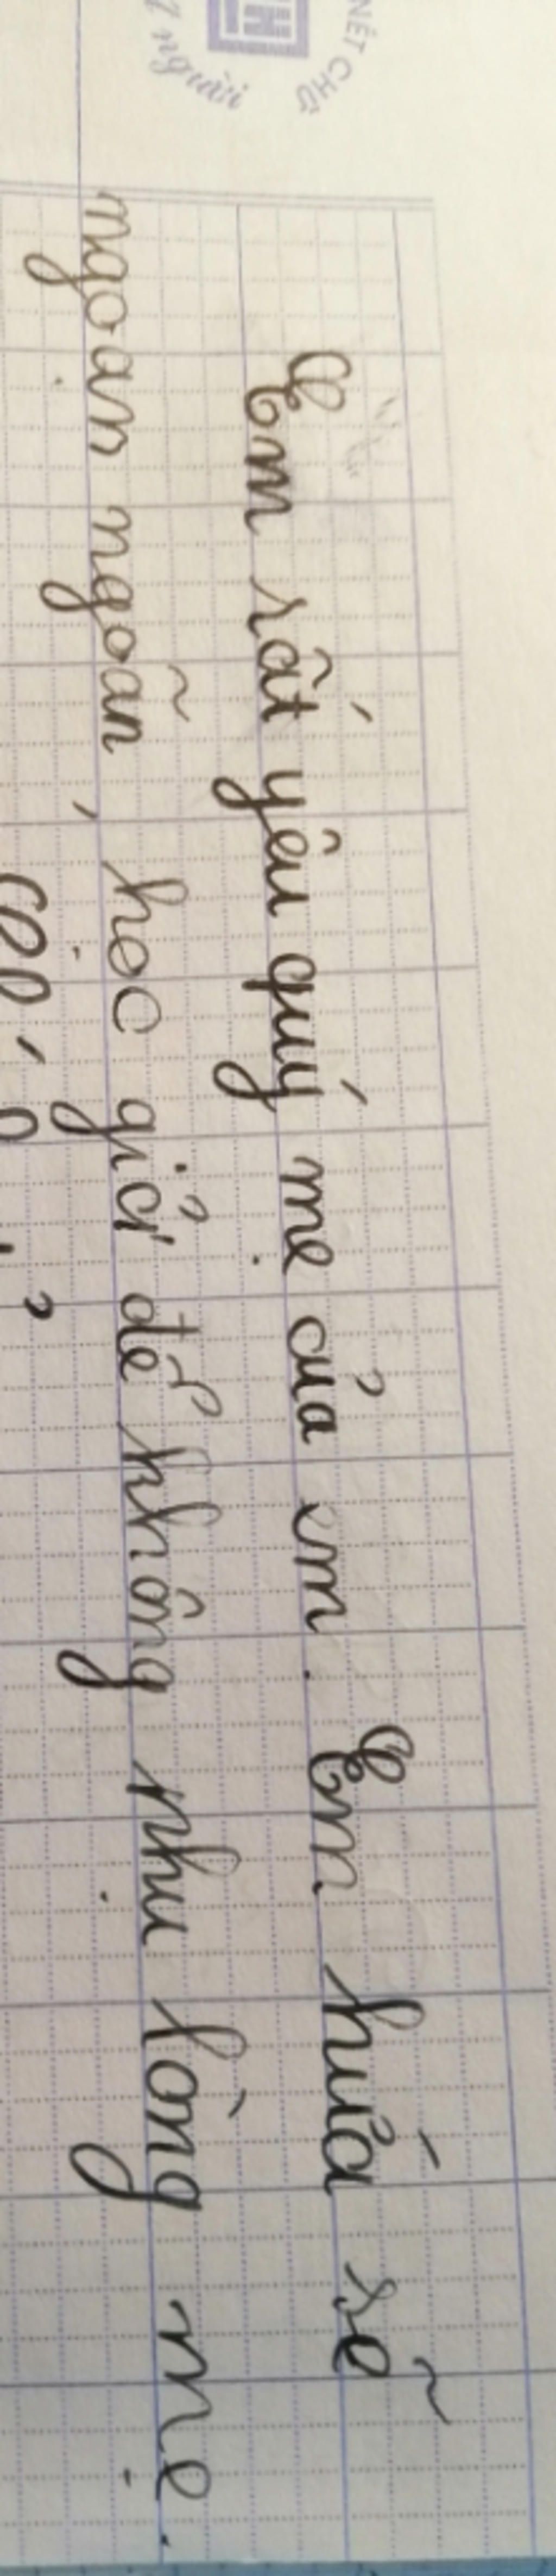 NÉT CHỮ
người
Em rất yêu quý mẹ của em. Em hứa sẽ
ngoan ngoãn, học giỏi để không phụ lòng mẹ.